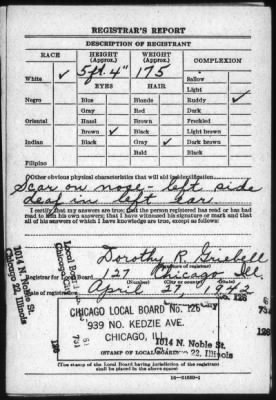 REGISTRAR'S REPORT
DESCRIPTION OF REGISTRANT
RACE
HEIGHT
(Approx.)
WEIGHT
(Approx.)
COMPLEXION
5 ft. 4" 175
White ✓
Sallow
Light
EYES HAIR
Ruddy ✓
Negro Blue Blonde Dark
Gray Red Freckled
Oriental Hazel Brown Light brown
Brown ✓ Black Dark brown
Indian Black Gray ✓ Black
Bald
Filipino
Other obvious physical characteristics that will aid in identification
Scar on nose - left side
deaf in left ear
I certify that my answers are true; that the person registered has read or has had
read to him his own answers; that I have witnessed his signature or mark and that
all of his answers of which I have knowledge are true, except as follows:
Dorothy R. Griebell
(Signature of registrar)
Registrar for Local Board 127 Chicago Ill.
(Number)
Date of registration April 27, 1942
Local Board
1014 N. Noble St.
Chicago 22, Illinois
126
CHICAGO LOCAL BOARD No. 126
939 NO. KEDZIE AVE.
CHICAGO, ILL.
1014 N. Noble St.
22, Illinois
(STAMP OF LOCAL BOARD)
(The stamp of the Local Board having jurisdiction of the registrant
shall be placed in the above space)